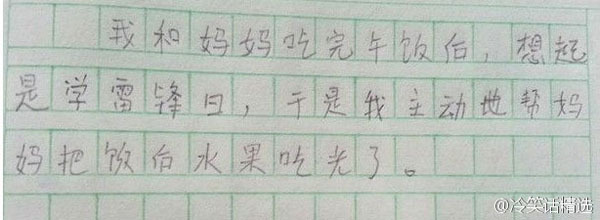 我和妈妈吃完午饭后，想起
是学雷锋日，于是我主动地帮妈
妈把饭后水果吃光了。
@冷笑话精选